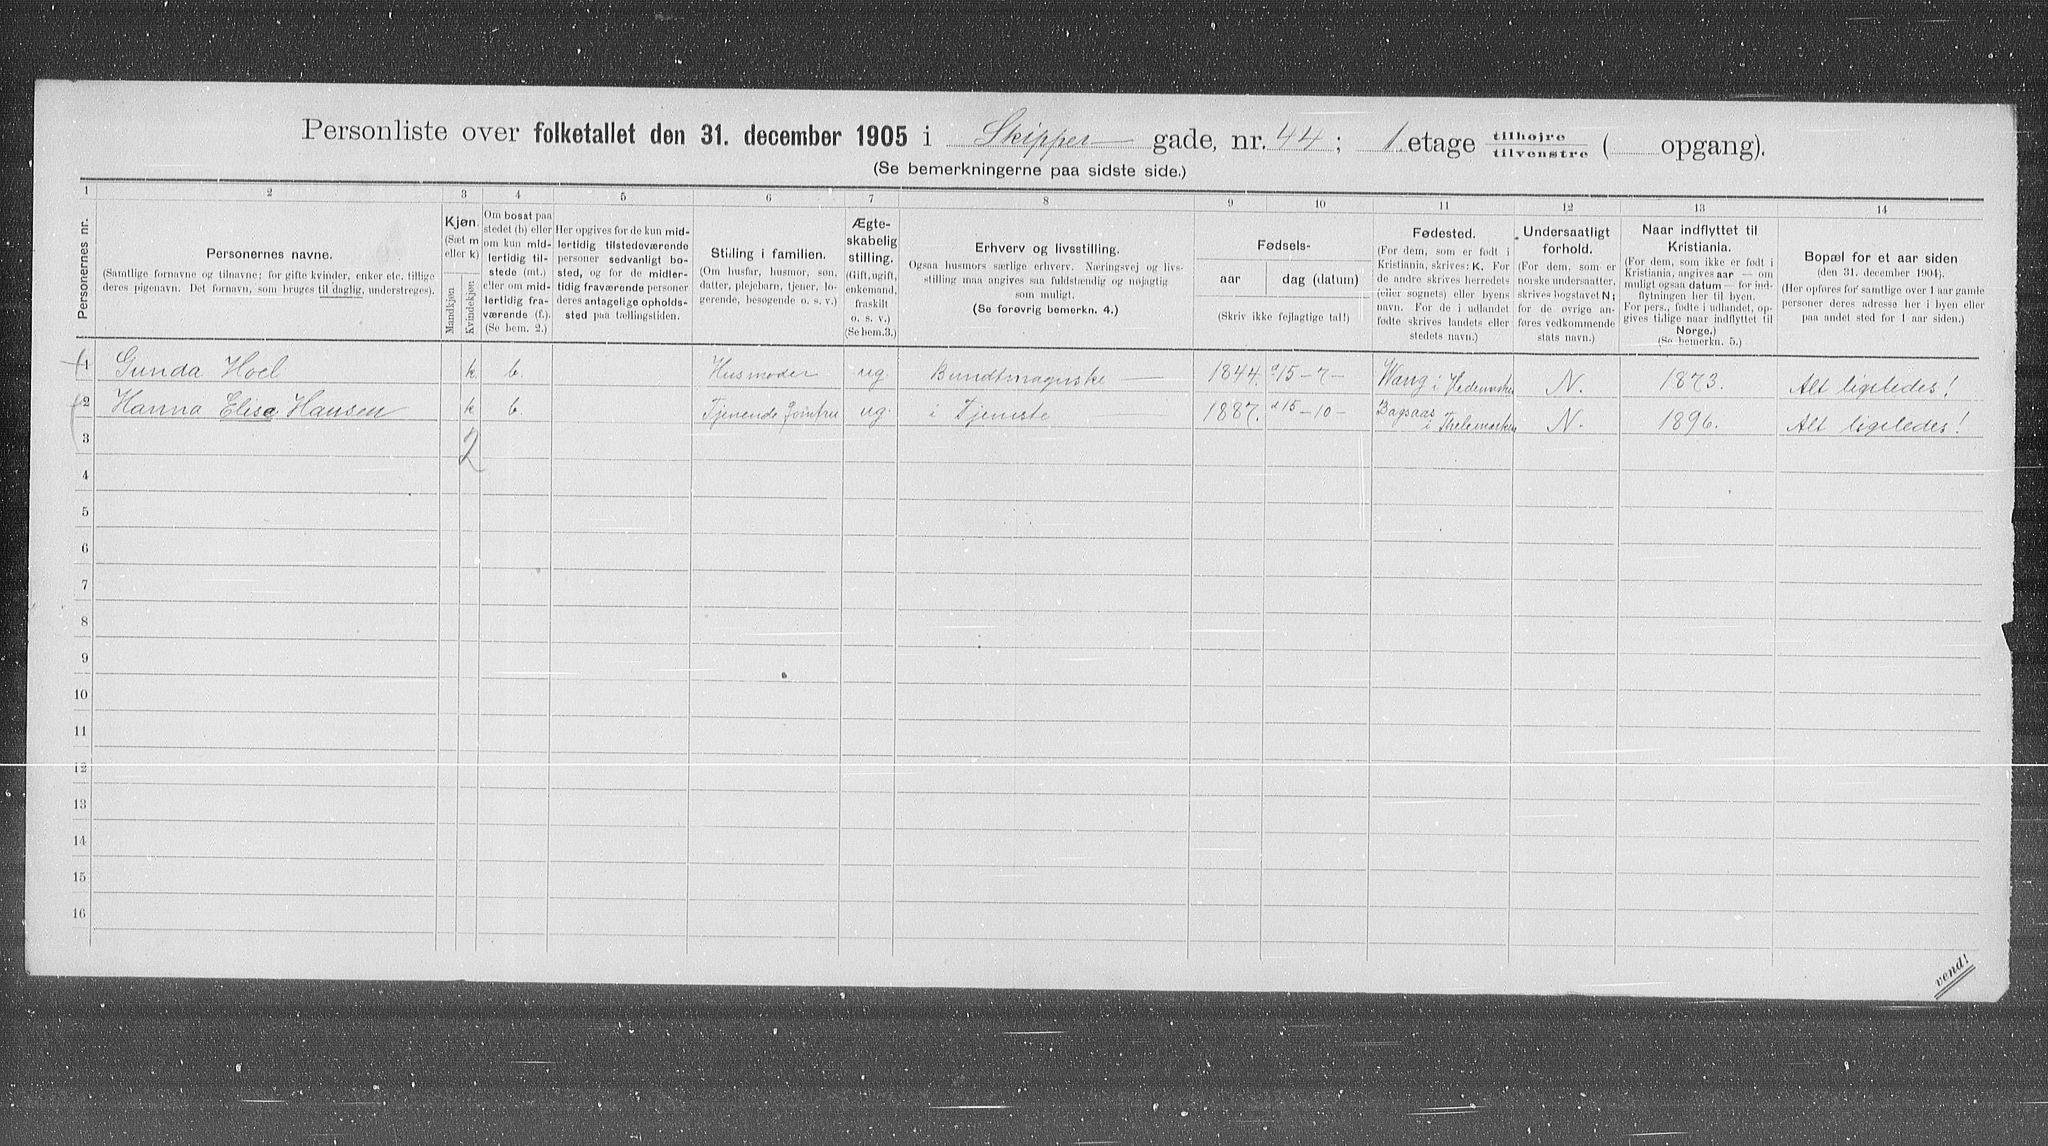 Personliste over folketallet den 31. december 1905 i Skipper gade, nr. 44; 1. etage tilhøjre tilvenstre ( opgang).
(Se bemerkningerne paa sidste side.)
1 2 3 4 5 6 7 8 9 10 11 12 13 14
Personernes nr.
Personernes navne.
(Samtlige fornavne og tilnavne; for gifte kvinder, enker etc. tillige
deres pigenavn. Det fornavn, som bruges til daglig, understreges).
Kjøn.
(Sæt m
eller k)
Mandkjøn
Kvindekjøn
Om bosat paa
stedet (b) eller
om kun mid-
lertidig til-
stede (mt.)
eller om mid-
lertidig fra-
værende (f.).
(Se bem. 2.)
Her opgives for de kun mid-
lertidig tilstedeværende
personer sedvanligt bo-
sted, og for de midler-
tidig fraværende personer
deres antagelige opholds-
sted paa tællingstiden.
Stilling i familien.
(Om husfar, husmor, søn,
datter, plejebarn, tjener, lo-
gerende, besøgende o. s. v.)
Ægte-
skabelig
stilling.
(Gift, ugift,
enkemand,
fraskilt
o. s. v.)
(Se bem.3.)
Erhverv og livsstilling.
Ogsaa husmors særlige erhverv. Næringsvej og livs-
stilling maa angives saa fuldstændig og nøjagtig
som muligt.
(Se forøvrig bemerkn. 4.)
Fødsels-
aar
dag (datum)
(Skriv ikke fejlagtige tal!)
Fødested.
(For dem, som er født i
Kristiania, skrives: K. For
de andre skrives herredets
(eller sognets) eller byens
navn. For de i udlandet
fødte skrives landets eller
stedets navn.)
Undersaatligt
forhold.
(For dem, som er
norske undersaatter,
skrives bogstavet N;
for de øvrige an-
føres vedkommende
stats navn.)
Naar indflyttet til
Kristiania.
(For dem, som ikke er født i
Kristiania, angives aar — om
muligt ogsaa datum — for ind-
flytningen her til byen.
For pers., fødte i udlandet, op-
gives tidlige naar indflyttet til
Norge.)
(Se bemerkn. 5.)
Bopæl for et aar siden
(den 31. december 1904).
(Her opføres for samtlige over 1 aar gamle
personer deres adresse her i byen eller
paa andet sted for 1 aar siden.)
1 Gunda Hoel k. b. Husmoder ug. Bundtmagerske 1844. d 15-7- Wang i Hedemarken N. 1873. Alt ligeledes!
2 Hanna Elise Hansen k b. Tjenende Jomfru ug. i Tjeneste 1887. d 15-10- i Thelemarken N. 1896. Alt ligeledes!
3 2
4
5
6
7
8
9
10
11
12
13
14
15
16
vend!